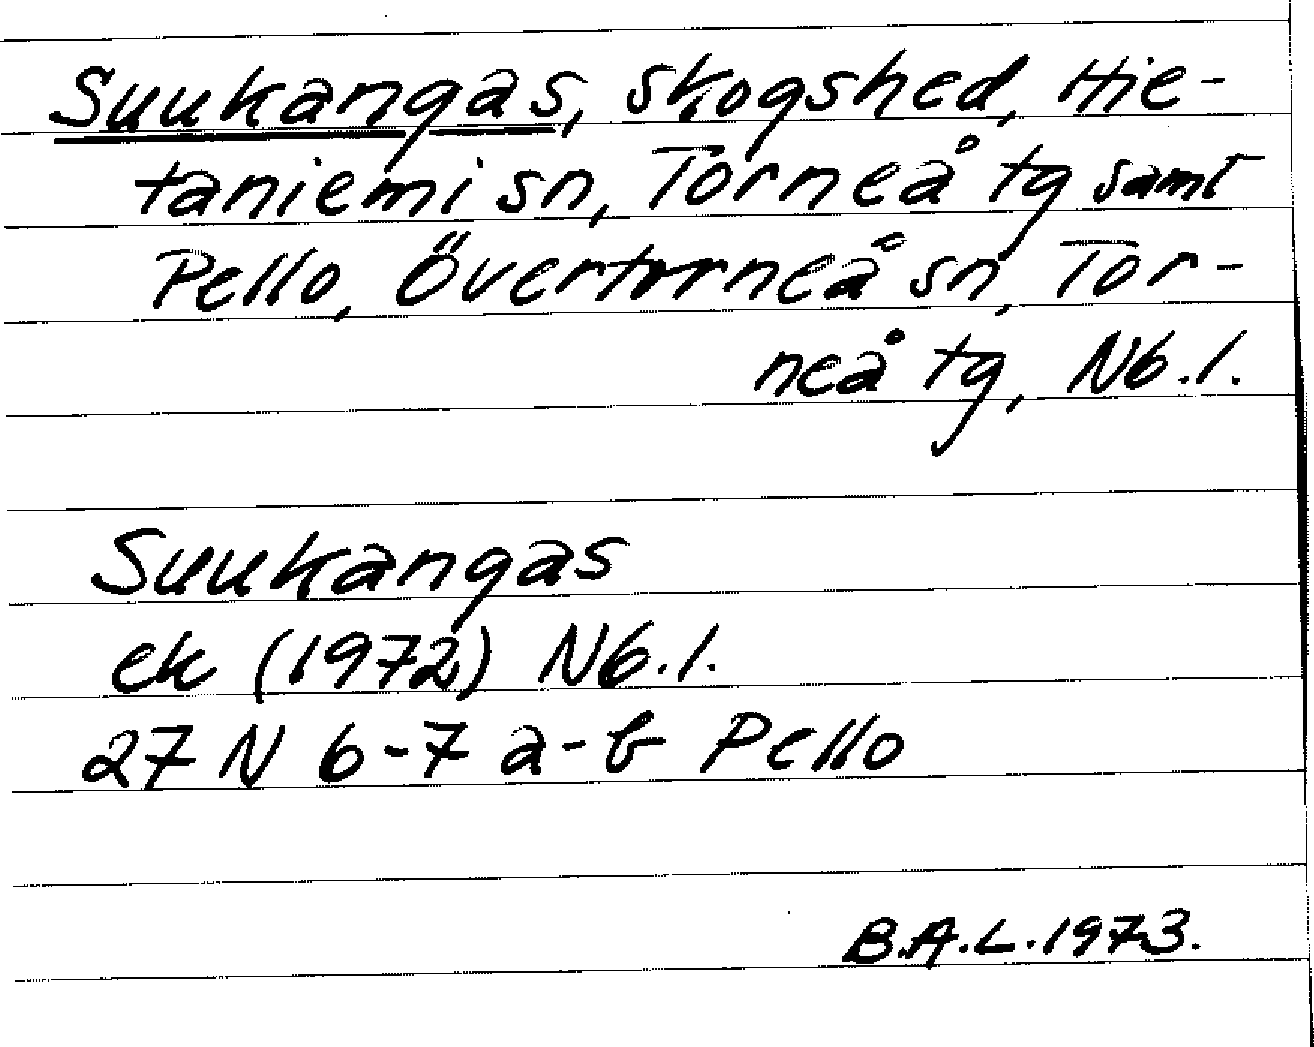 Suukangas, skogshed, Hie-
taniemi sn, Torneå tg samt
Pello, Övertorneå sn, Tor-
neå tg, Nb.l.
Suukangas
ek (1972) Nb.l.
27 N 6-7 a-b Pello
B.A.L. 1973.